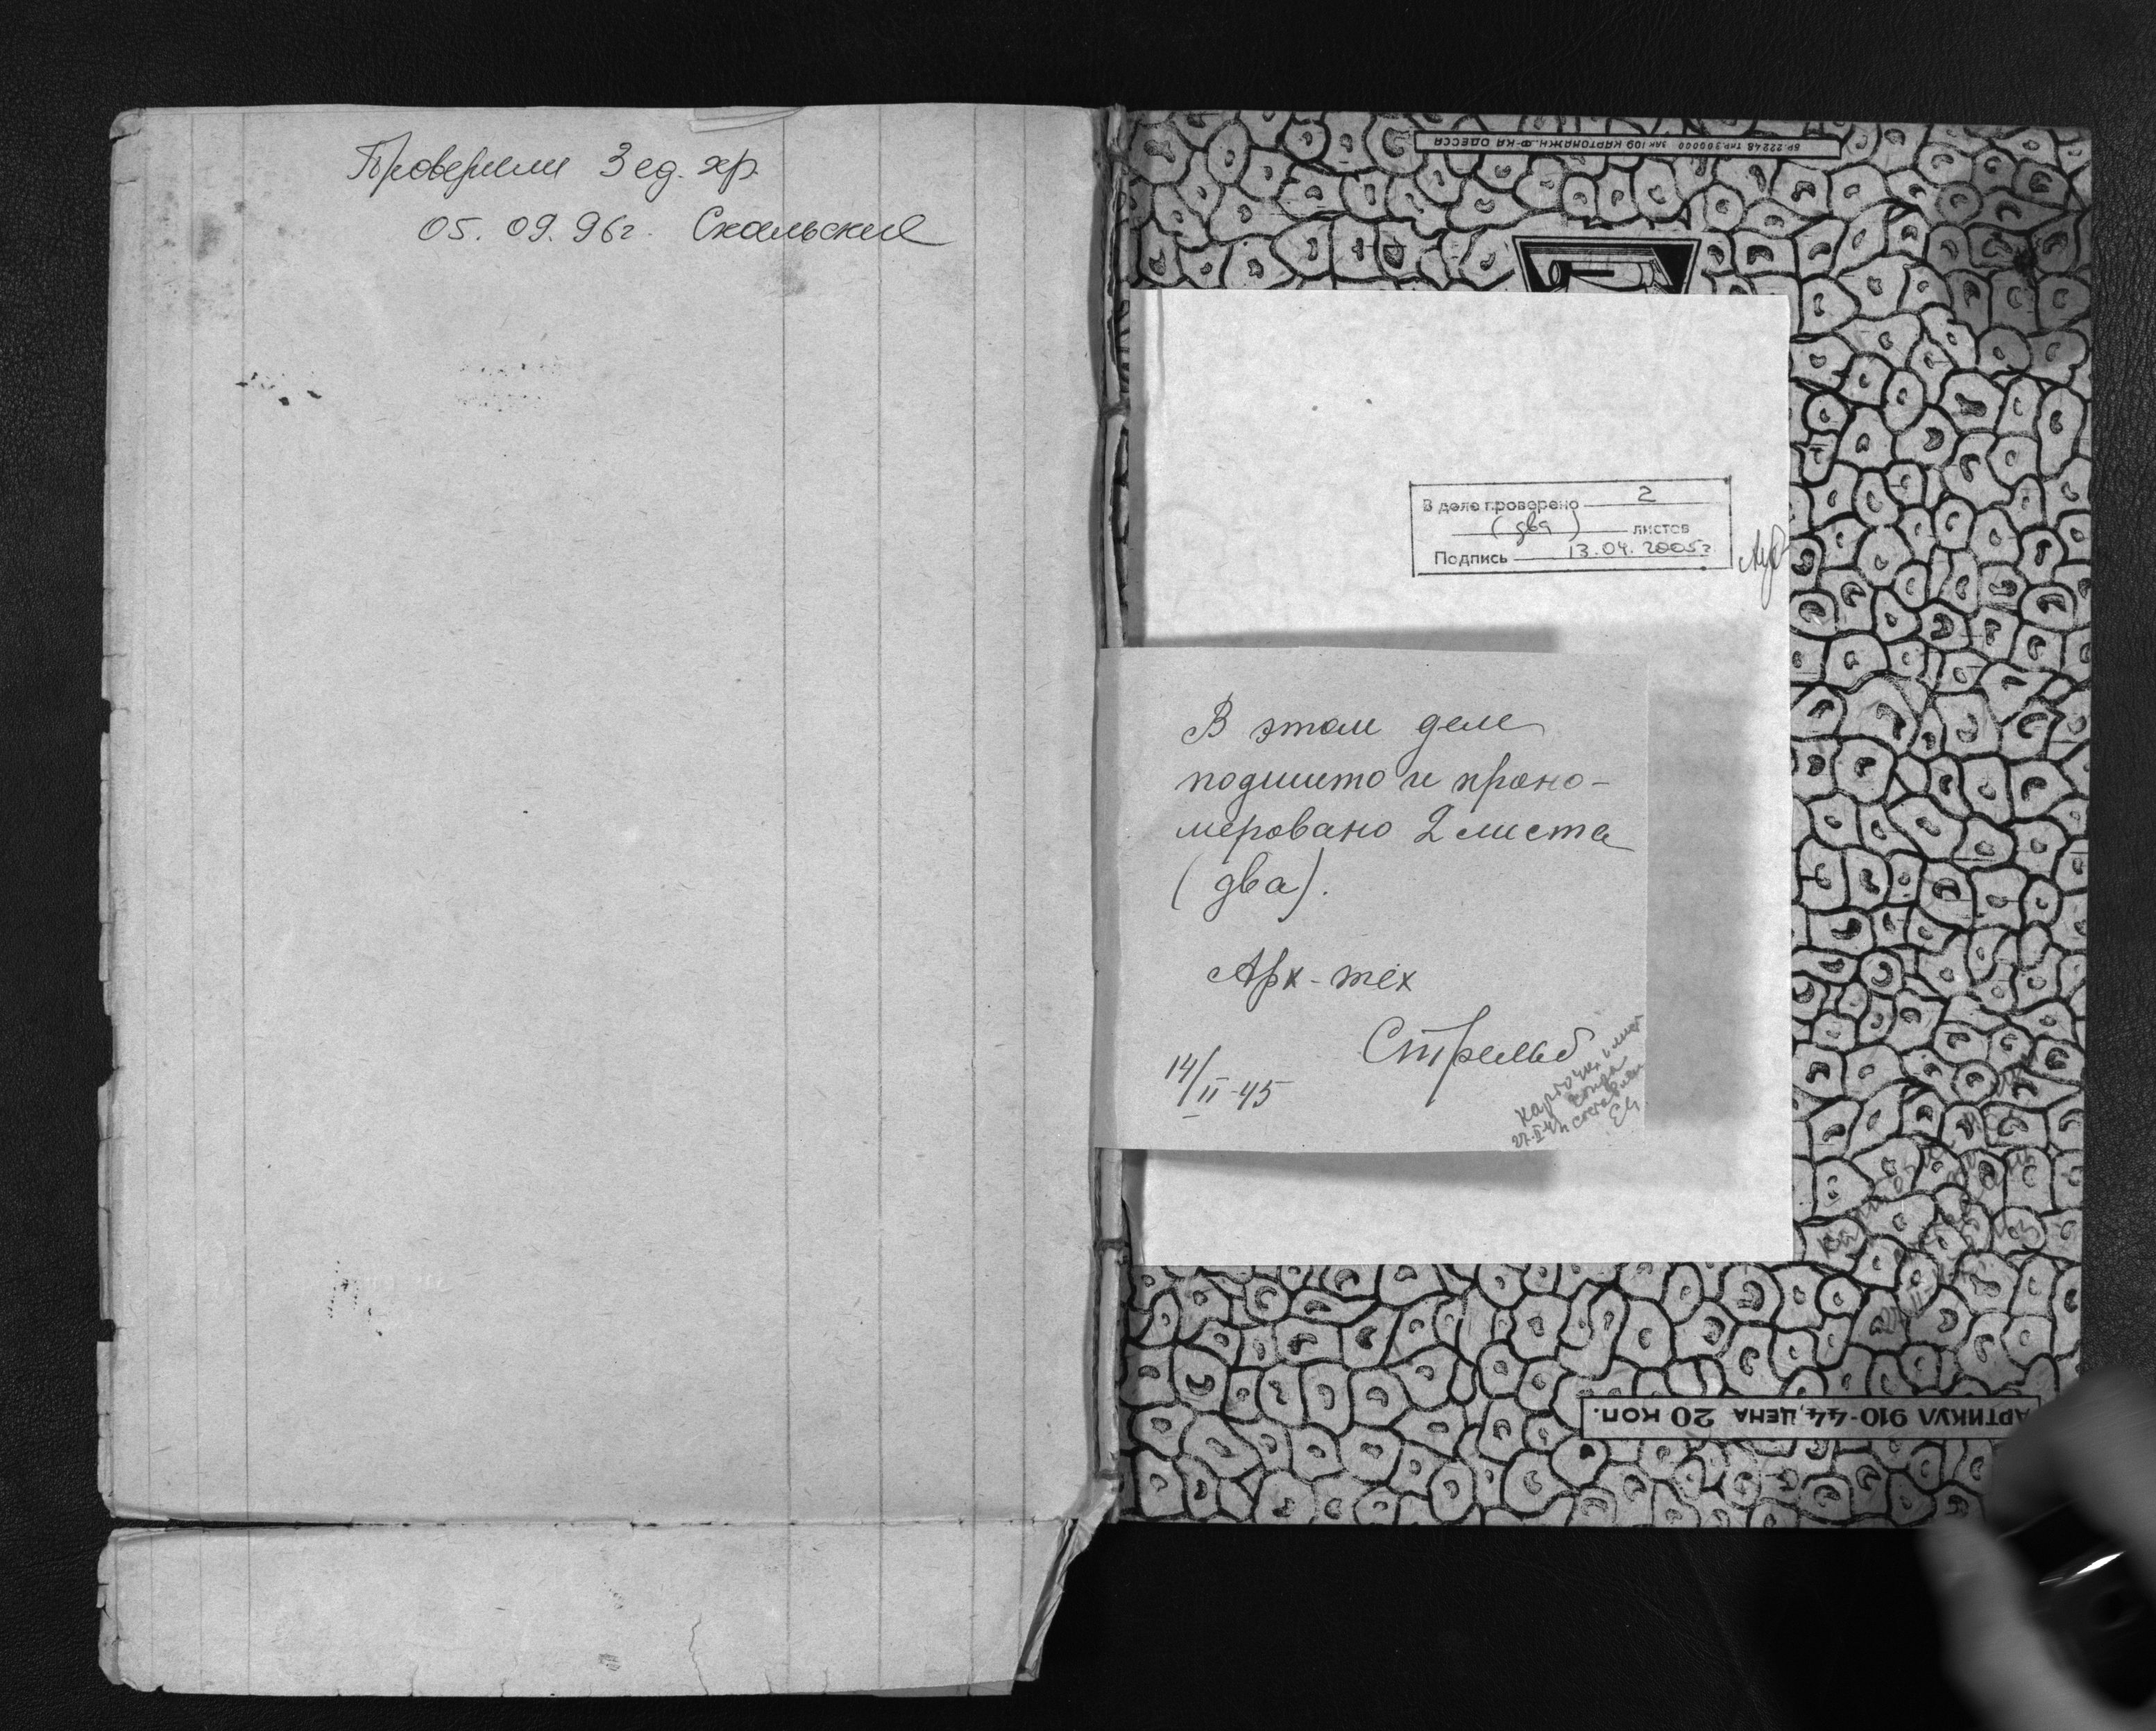 Проверили 3 ед. хр.
05.09.96г. Скальский
БР.22248 ТИР.300000 ЗАК 109 КАРТОНАЖН. Ф-КА ОДЕССА
В деле проверено 2
(два) листов
Подпись 13.04.2005г
В этом деле
подшито и проно-
меровано 2 листа
(два).
Арх-тех
14/II-45
Карточка
фонда
составлен
АРТИКУЛ 910-44, ЦЕНА 20 КОП.